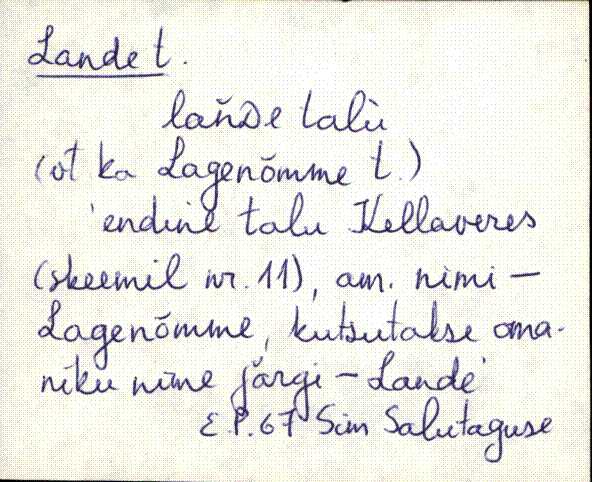 Lande t.
lańDe talù
(vt ka Lagenõmme t.)
'endine talu Kellaveres
(skeemil nr. 11), am. nimi –
Lagenõmme, kutsutakse oma-
niku nime järgi – Lande'
E.P. 67 Sim Salutaguse